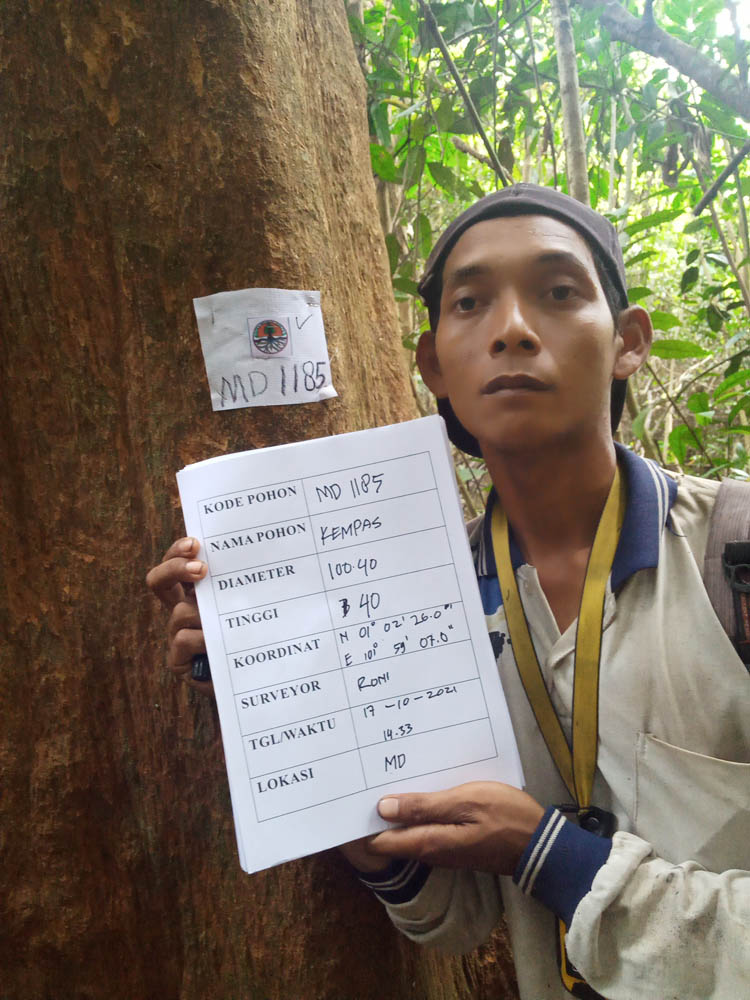 MD 1185
KODE POHON MD 1185
NAMA POHON KEMPAS
DIAMETER 100.40
TINGGI 40
KOORDINAT N 01° 02' 26.0"
E 101° 59' 07.0"
SURVEYOR RONI
TGL/WAKTU 17-10-2021
14.33
LOKASI MD